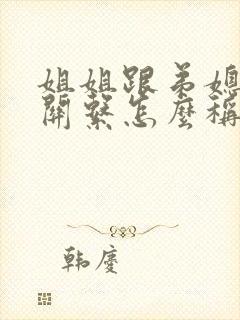 姐姐跟弟媳
關繫怎麼稱
韓慶